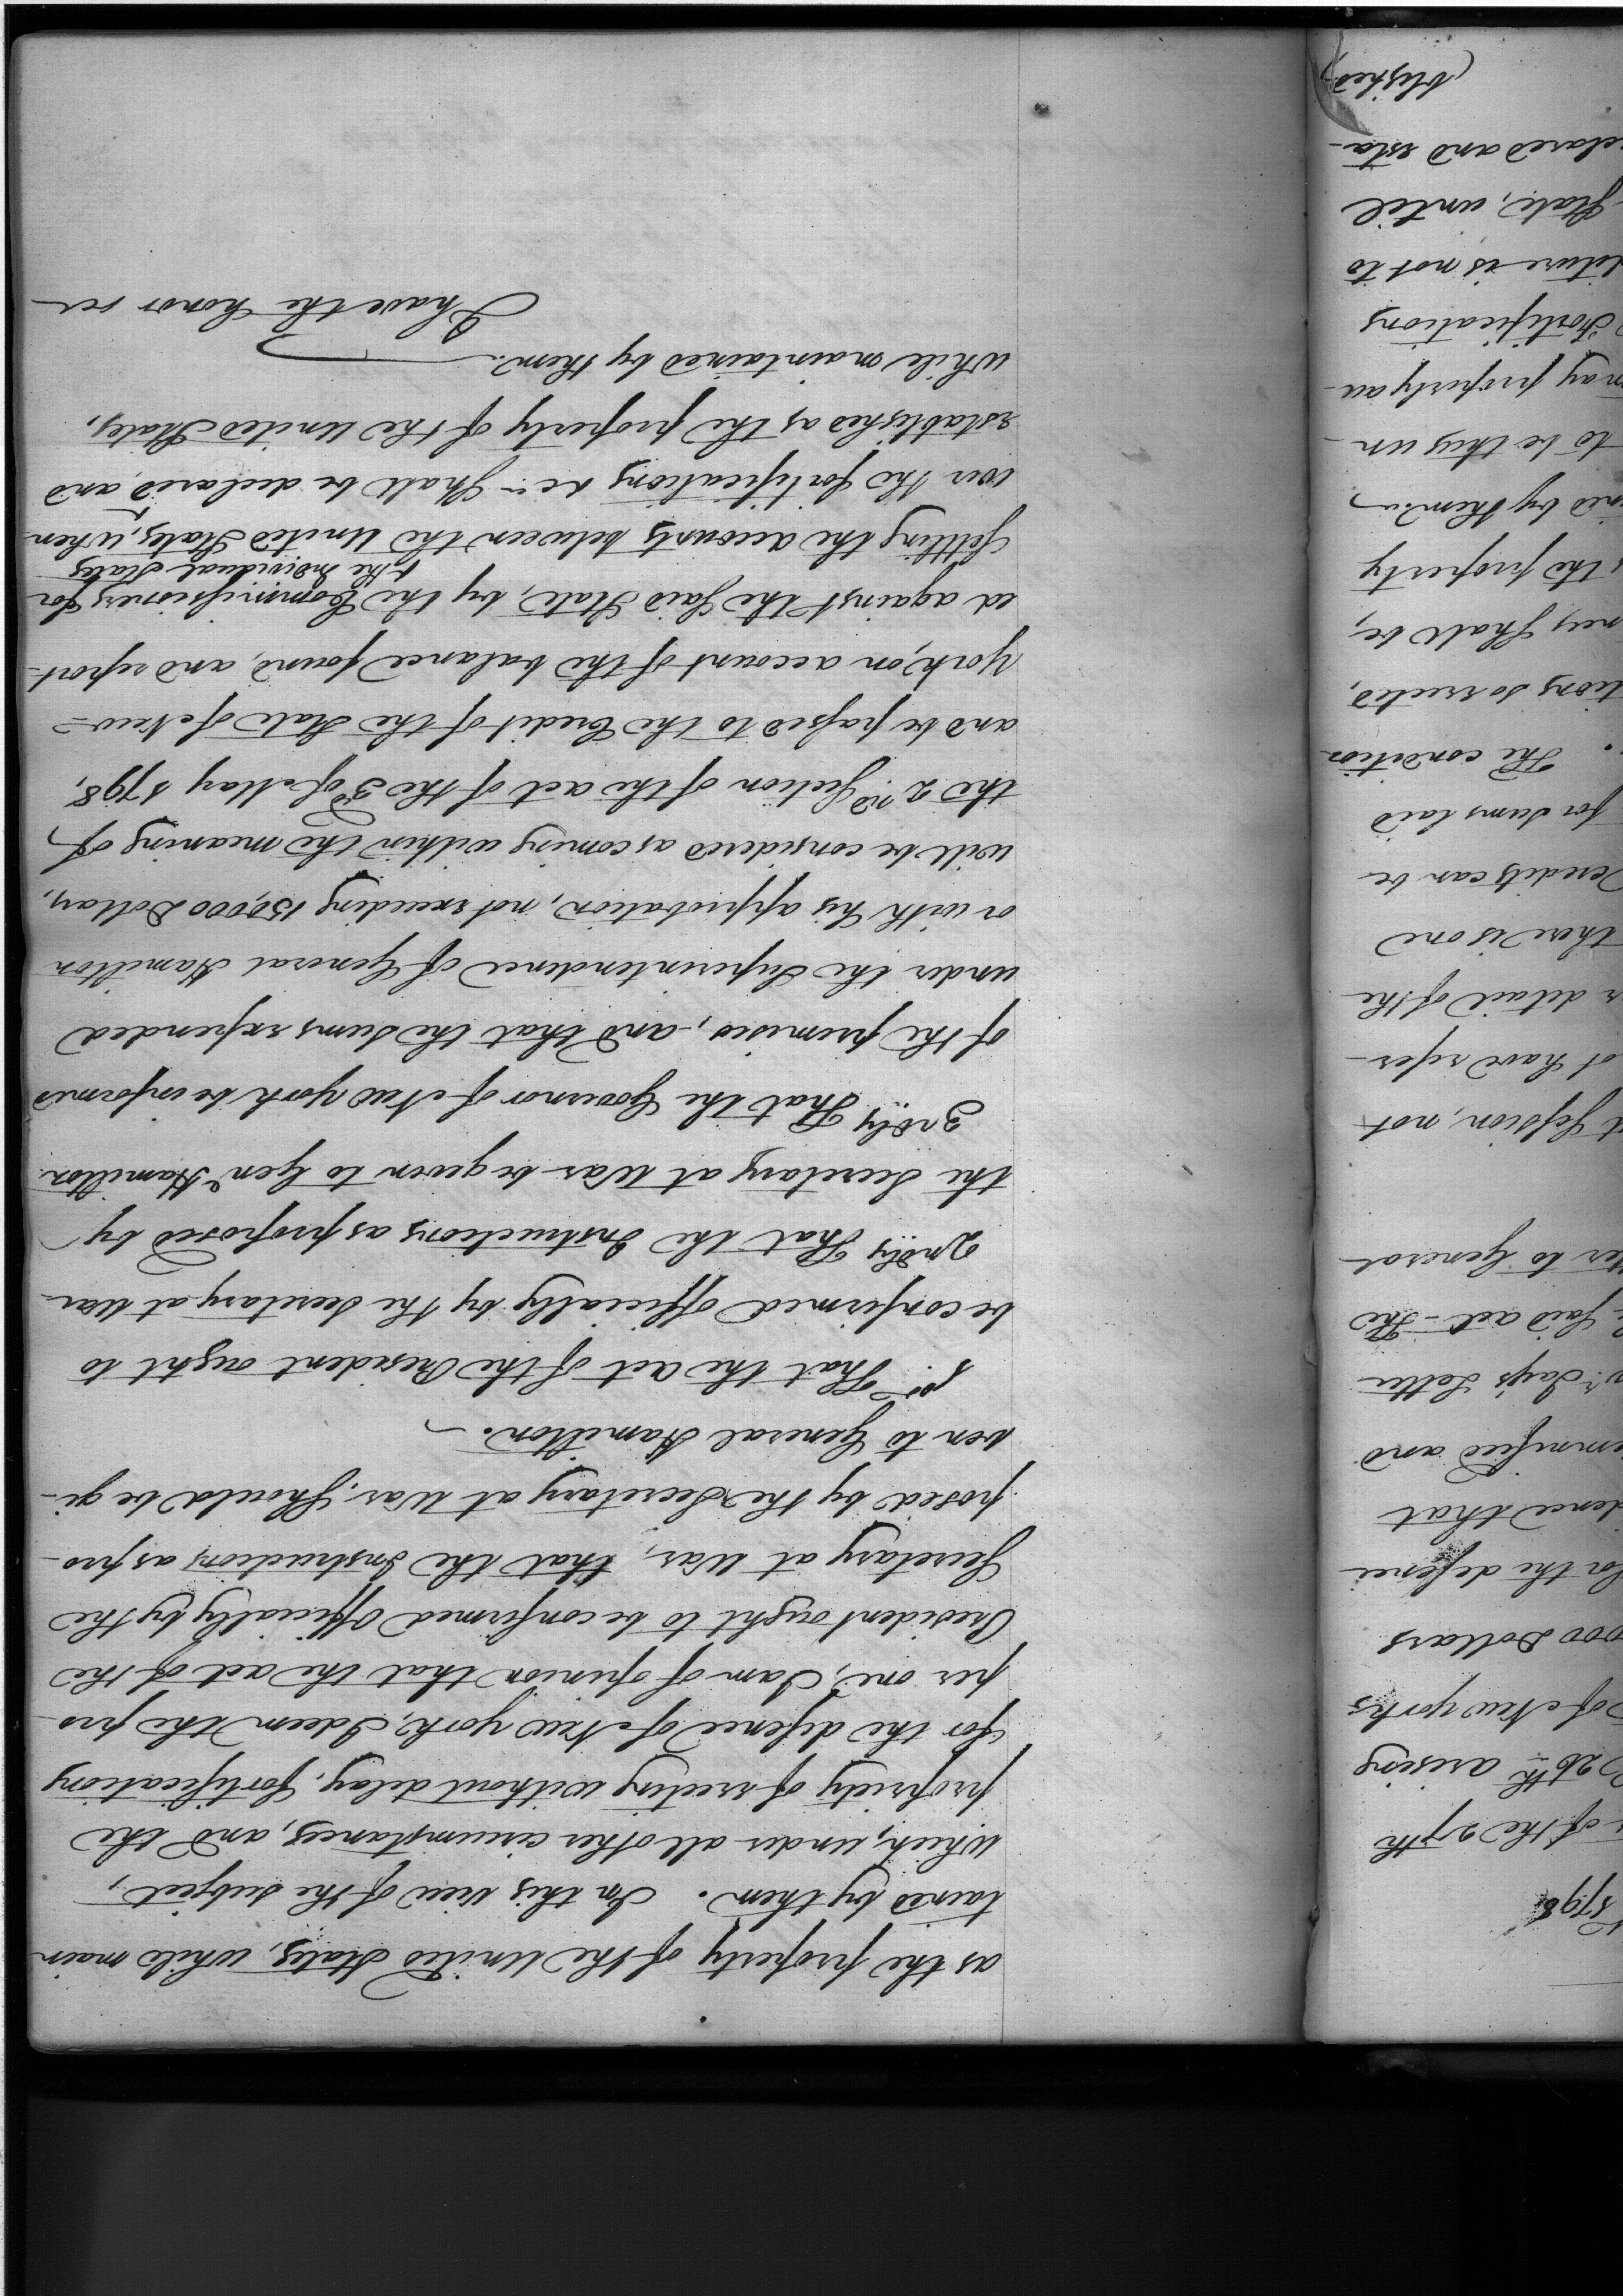 1798
of the 27th
26th arising
of New York's
000 Dollars
for the defence
dence that
emnified and
Mr. Jay's Letter
Said act - The
ter to General
t Session, not
ot have refer-
r detail of the
there is one
Credits can be
for sums laid
The condition
tions so erected,
nes Shall be,
s the property
ned by them."
to be thus un-
may properly au-
Fortifications
diture is not to
State, until
clared and esta-
(blished
as the property of the United States, while main-
tained by them. In this view of the subject,
which, under all other circumstances, and the
propriety of erecting without delay, fortifications
for the defence of New York, I deem the pro-
per one, I am of opinion that the act of the
President ought to be confirmed Officially by the
Secretary at War, that the Instructions as pro-
posed by the Secretary at War, Should be gi-
ven to General Hamilton. ~
1st. That the act of the President ought to
be confirmed officially by the Secretary at War
2ndly That the Instructions as proposed by
the Secretary at War be given to Genl Hamilton
3rdly That the Governor of New York be informed
of the premises, and that the sums expended
under the Superintendence of General Hamilton
or with his approbation, not exceeding 150,000 Dollars,
will be considered as coming within the meaning of
the 2nd Section of the act of the 3d of May 1798,
and be passed to the Credit of the State of New-
York, on account of the balance found, and report-
ed against the Said State, by the Commissioners for
& the Individual States
Settling the accounts between the United States, when-
ever the fortifications &c" Shall be declared, and
established as the property of the United States,
while maintained by them."
I have the honor &c